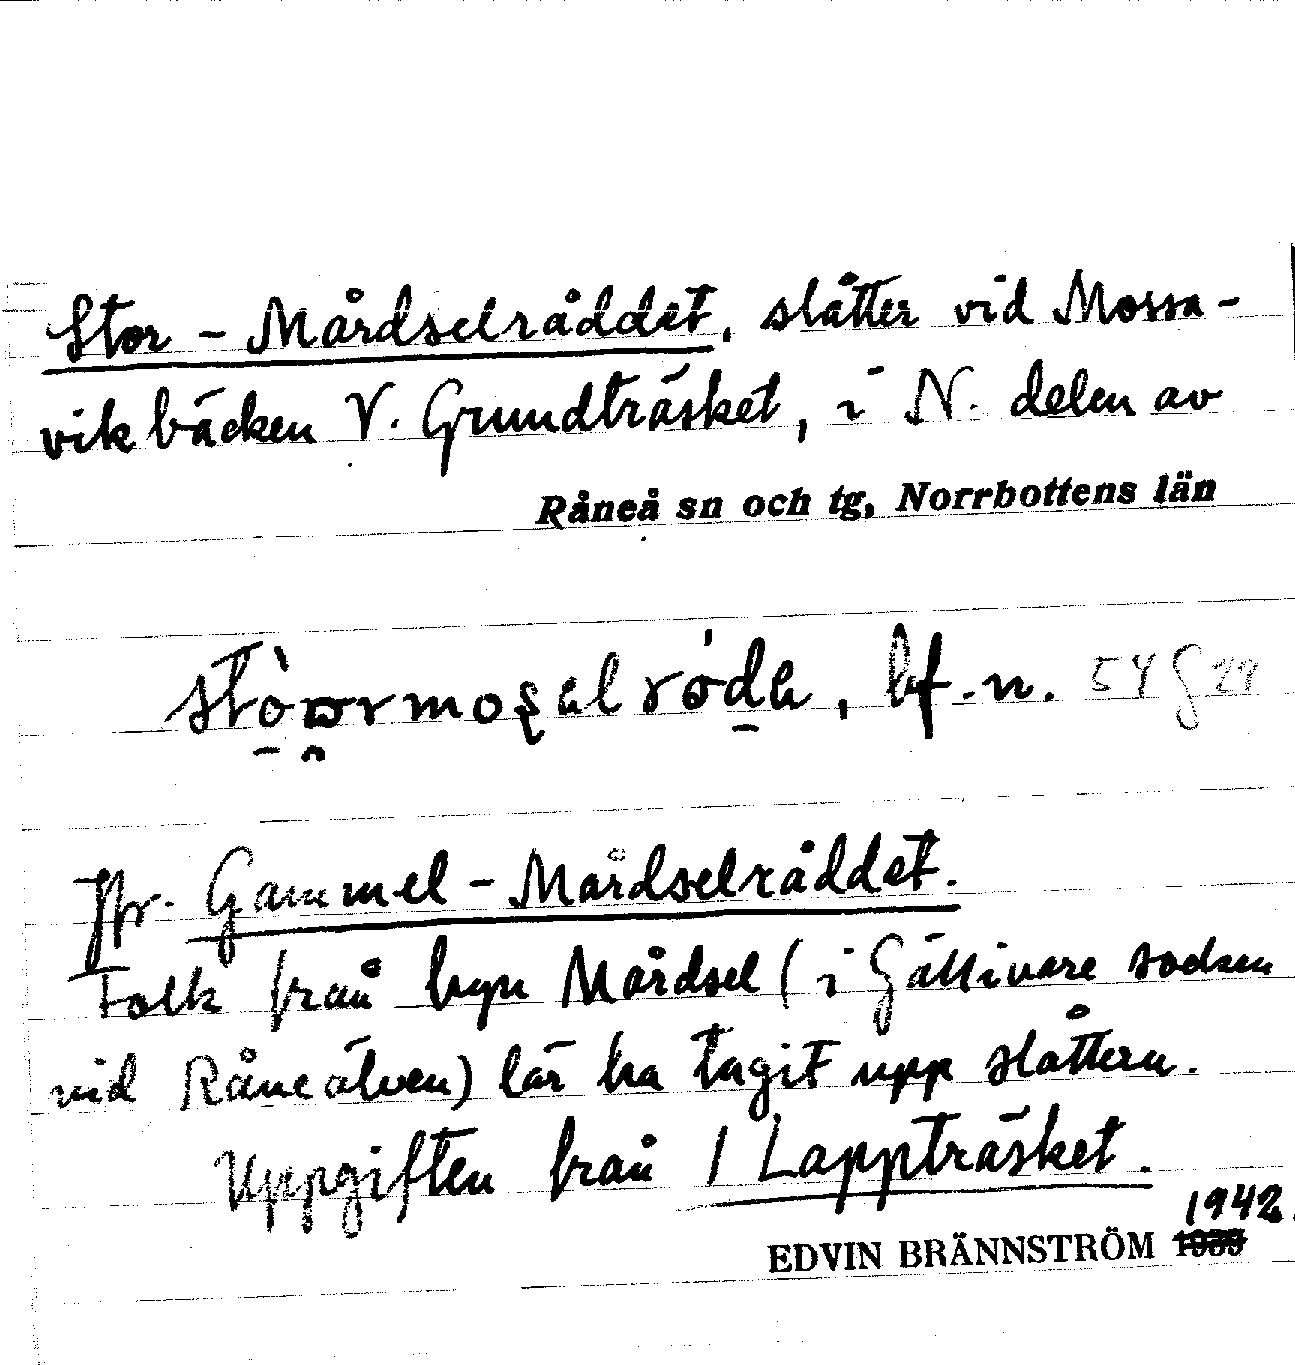 Stor-Mårdselråddet, slåtter vid Mossa-
vikbäcken V. Grundträsket, i N. delen av
Råneå sn och tg, Norrbottens län
bf.n. 54 G 29
Jfr. Gammel-Mårdselråddet.
Folk från byn Mårdsel (i Gällivare socken
vid Råneälven) lär ha tagit upp slåttern.
Uppgiften från 1 Lappträsket.
1942.
EDVIN BRÄNNSTRÖM 1939